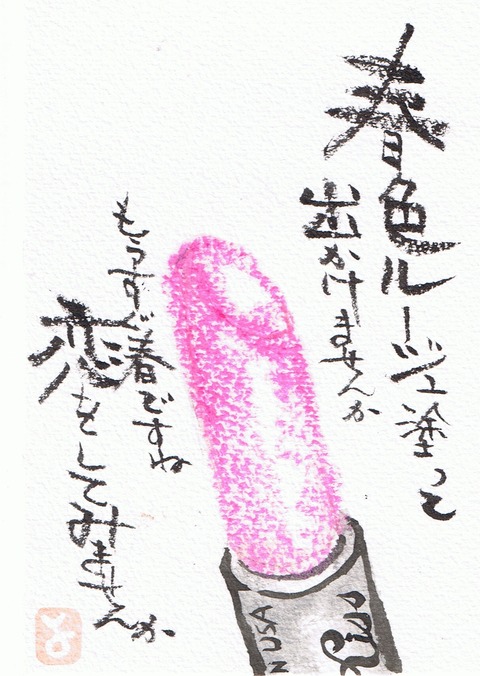 春色ルージュ塗って
出かけませんか
もうすぐ春ですね
恋をしてみませんか
N USA